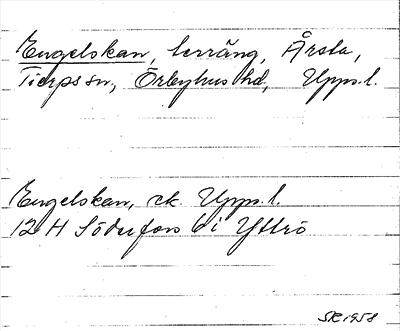 Engelskan, terräng, Årsta,
Tierps sn, Örbyhus hd, Upps. l.
Engelskan, ek Upps. l.
12 H Söderfors 6 i Yttrö
SR 1958